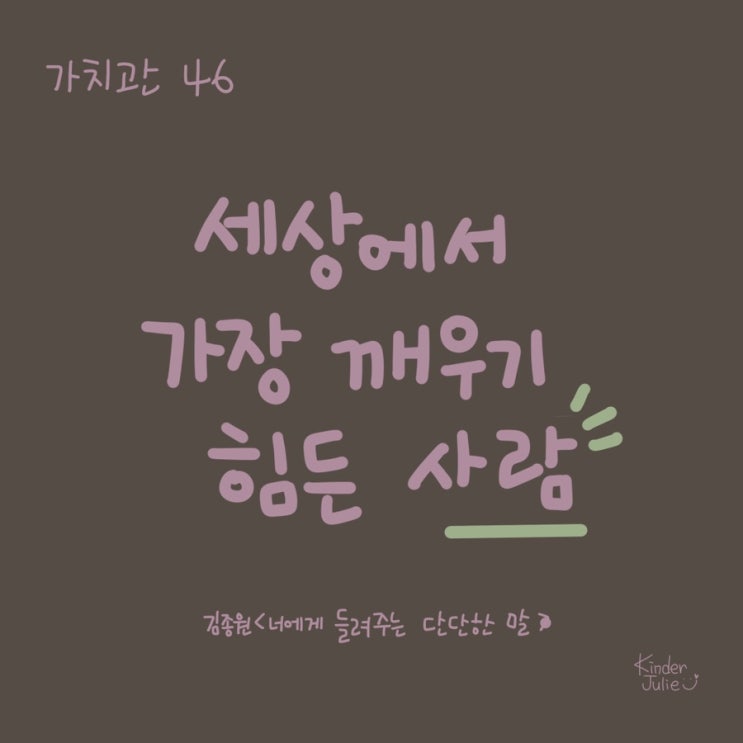 가치관 46
세상에서
가장 깨우기
힘든 사람
김종원 <너에게 들려주는 단단한 말>
Kinder
Julie